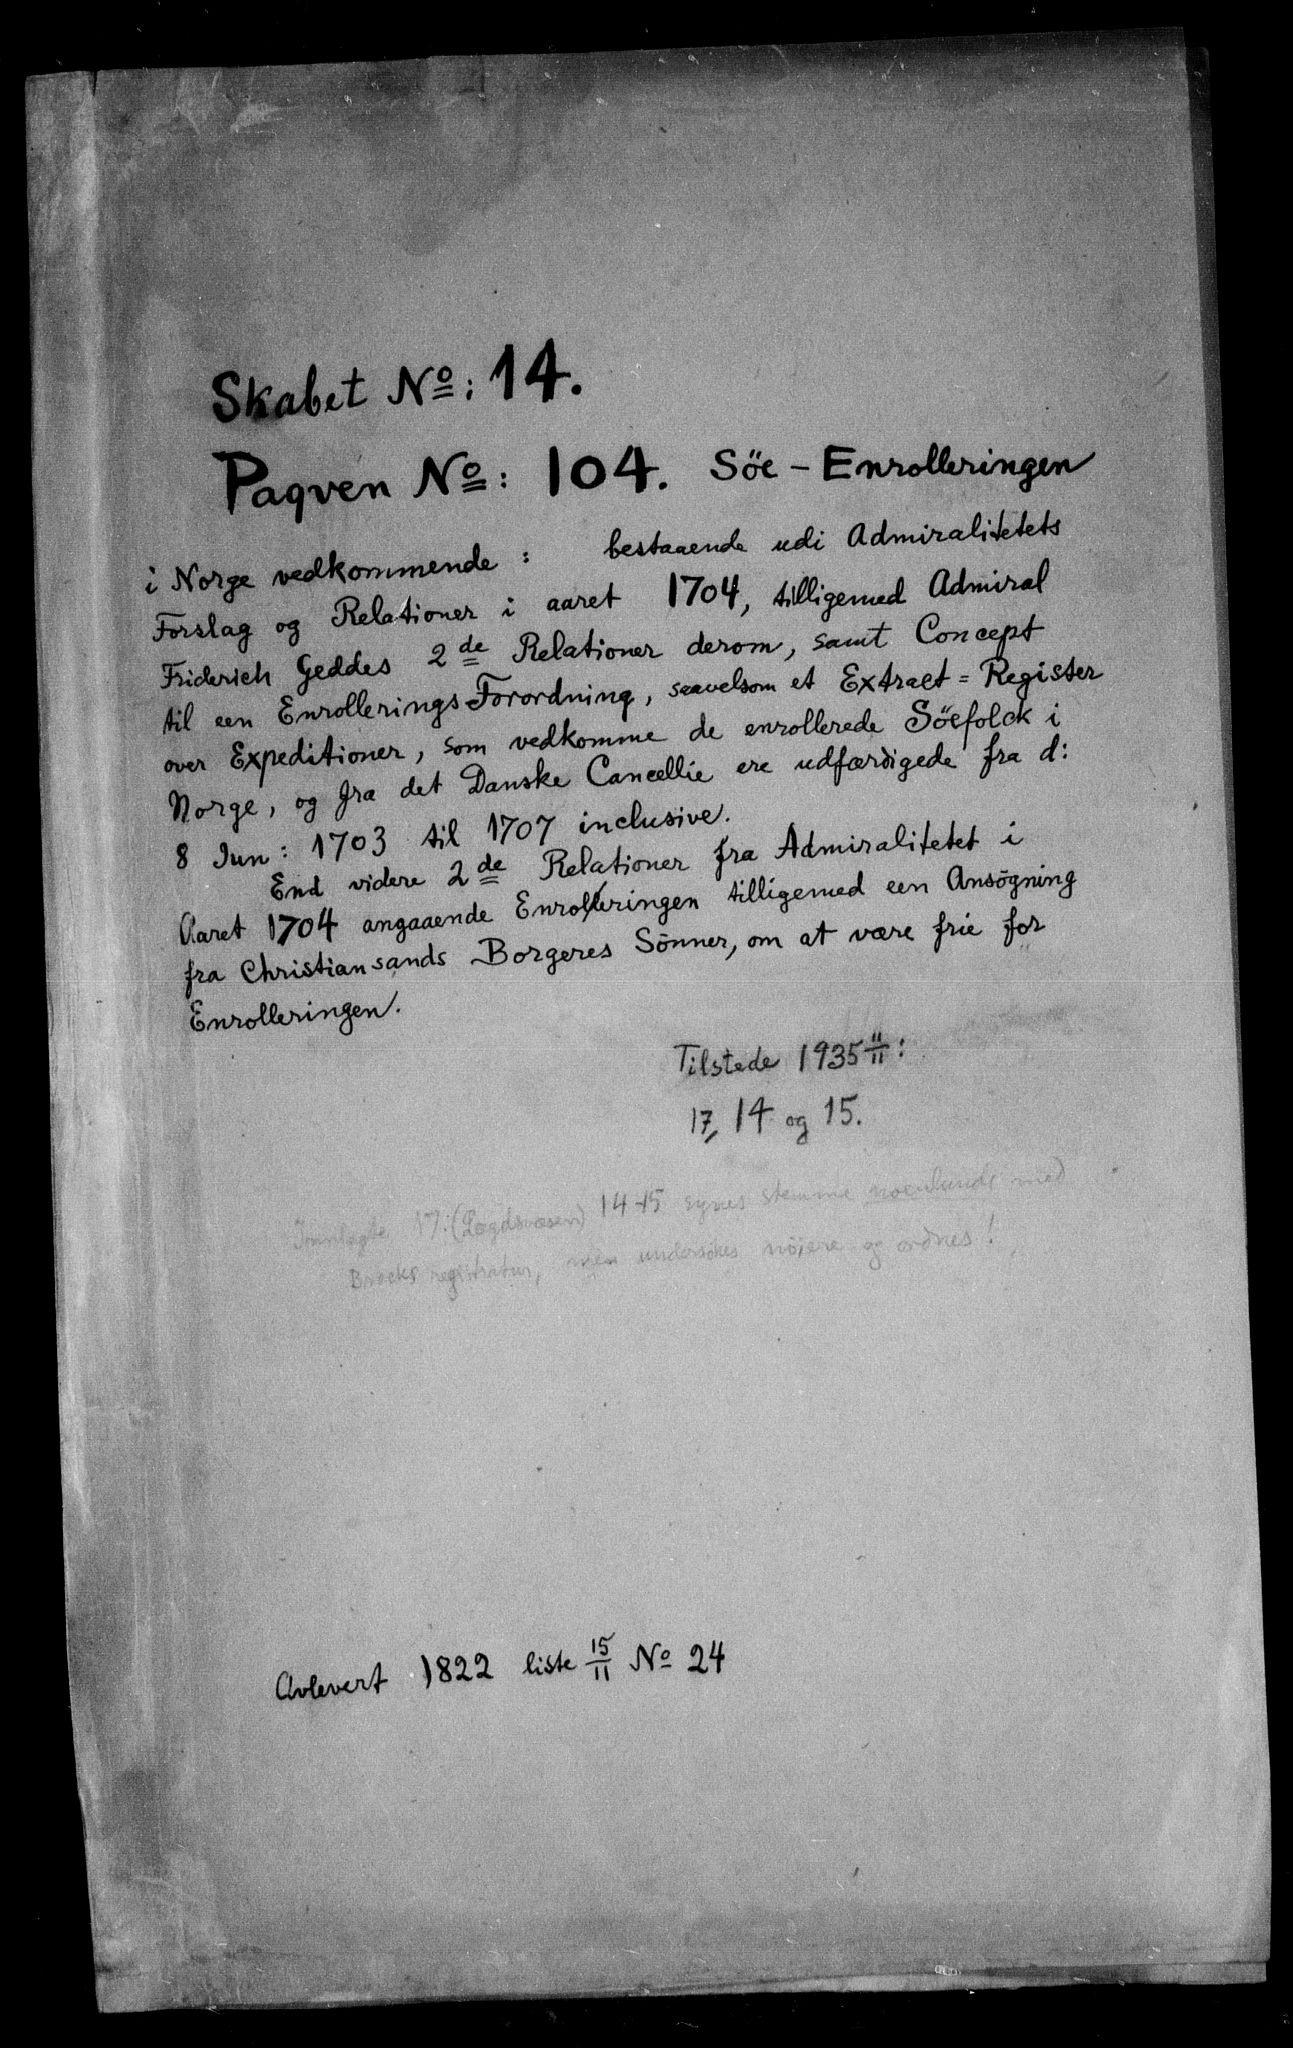 Skabet No: 14.
Paqven No: 104. Söe - Enrolleringen
i Norge vedkommende : bestaaende udi Admiralitetets
Forslag og Relationer i aaret 1704, tilligemed Admiral
Friderich Geddes 2de Relationer derom, samt Concept
til een Enrollerings-Forordning, saavelsom et Extract = Register
over Expeditioner, som vedkomme de enrollerede Söefolck i
Norge, og fra det Danske Cancellie ere udfærdigede fra d:
8 Jun: 1703 til 1707 inclusive.
End videre 2de Relationer fra Admiralitetet i
Aaret 1704 angaaende Enrolleringen tilligemed een Ansögning
fra Christiansands Borgeres Sönner, om at være frie for
Enrolleringen.
Tilstede 1935 11/11:
17, 14 og 15.
Innlagte 17: (Lægdsvæsen) 14-15 synes stemme noenlunde med
Brocks registratur, men undersökes nöiere og ordnes!
Avlevert 1822 liste 15/11 No 24